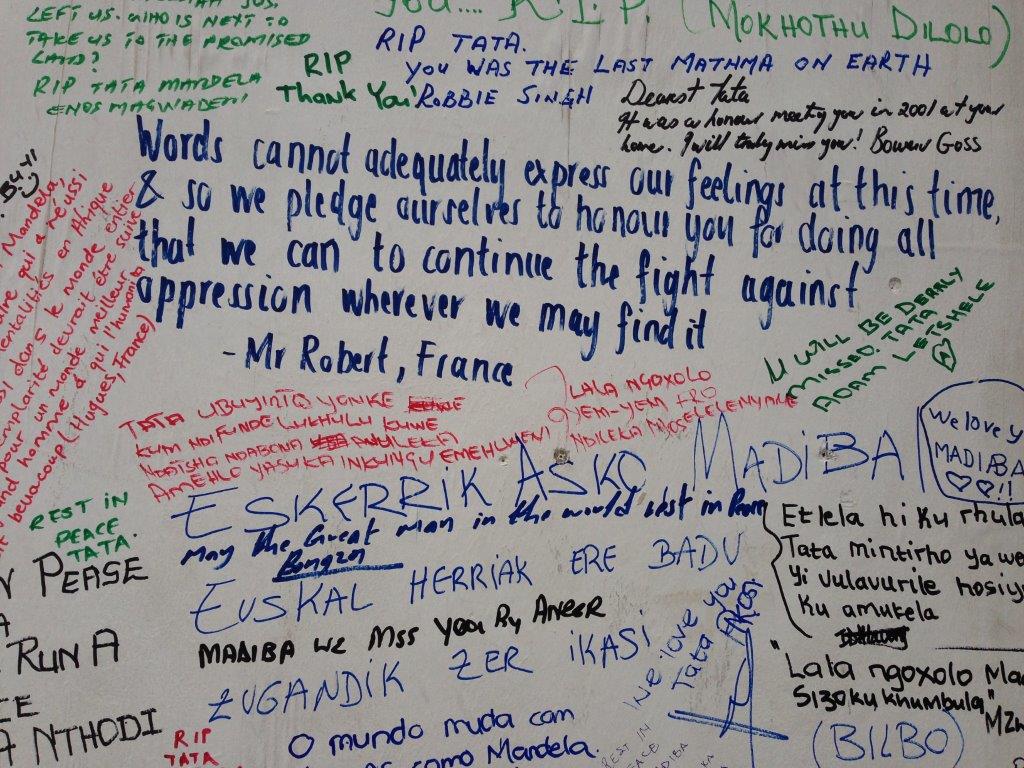 LEFT US. WHO IS NEXT TO
TAKE US TO THE PROMISED
LAND?
RIP TATA MANDELA
ENOS MAGWADENI
you.... R.I.P. (MOKHOTHU DILOLO)
RIP
Thank You!
RIP TATA.
YOU WAS THE LAST MATHMA ON EARTH
ROBBIE SINGH
Dearest Tata
It was a honour meeting you in 2001 at your
home. I will truly miss you! Bowen Goss
Words cannot adequately express our feelings at this time,
& so we pledge ourselves to honour you for doing all
that we can to continue the fight against
oppression wherever we may find it
- Mr Robert, France
Mandela,
qui a réussi
mentalités en Afrique
dans le monde entier
devrait être suivie
pour un monde meilleur
homme à qui l'humanité
beaucoup (Hugues, France)
U WILL BE DEARLY
MISSED. TATA
ADAM LETSHELE
TATA UBUYINTO YONKE
KUM NDIFUNDE LUKHULU KUWE
AMEHLO YASUKA INKUNGU EMEHLWENI
LALA NGOXOLO
YEM-YEM
We love y
MADIBA
!!
ESKERRIK ASKO MADIBA
May the Great man in the world rest in Peace
Bongzn
EUSKAL HERRIAK ERE BADU
MADIBA WE Mss You By ANEER
ZUGANDIK ZER IKASI
REST IN
PEACE
TATA.
PEASE
RUN A
NTHODI
RIP
TATA
O mundo muda com
como Mandela.
We love you
Tata
REST IN
PEACE
MADIBA
Etlela hi Ku rhula
Tata mintirho ya we
yi vulavurile hosiy
Ku amukela
"Lala ngoxolo Ma
Sizoku khumbula"
(BILBO)